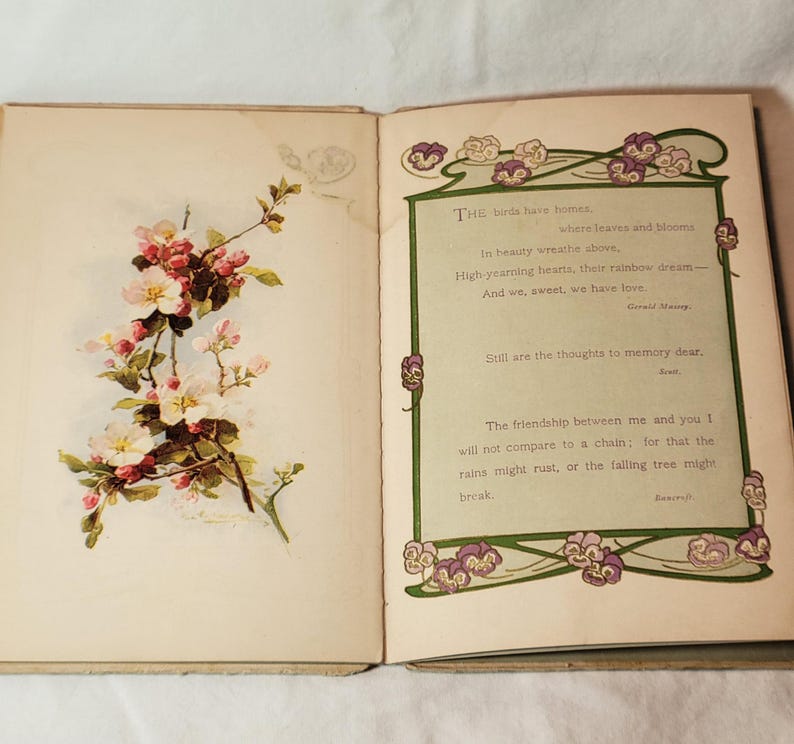 THE birds have homes,
where leaves and blooms
In beauty wreathe above,
High-yearning hearts, their rainbow dream—
And we, sweet, we have love.
Gerald Massey.
Still are the thoughts to memory dear.
Scott.
The friendship between me and you I
will not compare to a chain; for that the
rains might rust, or the falling tree might
break.
Bancroft.